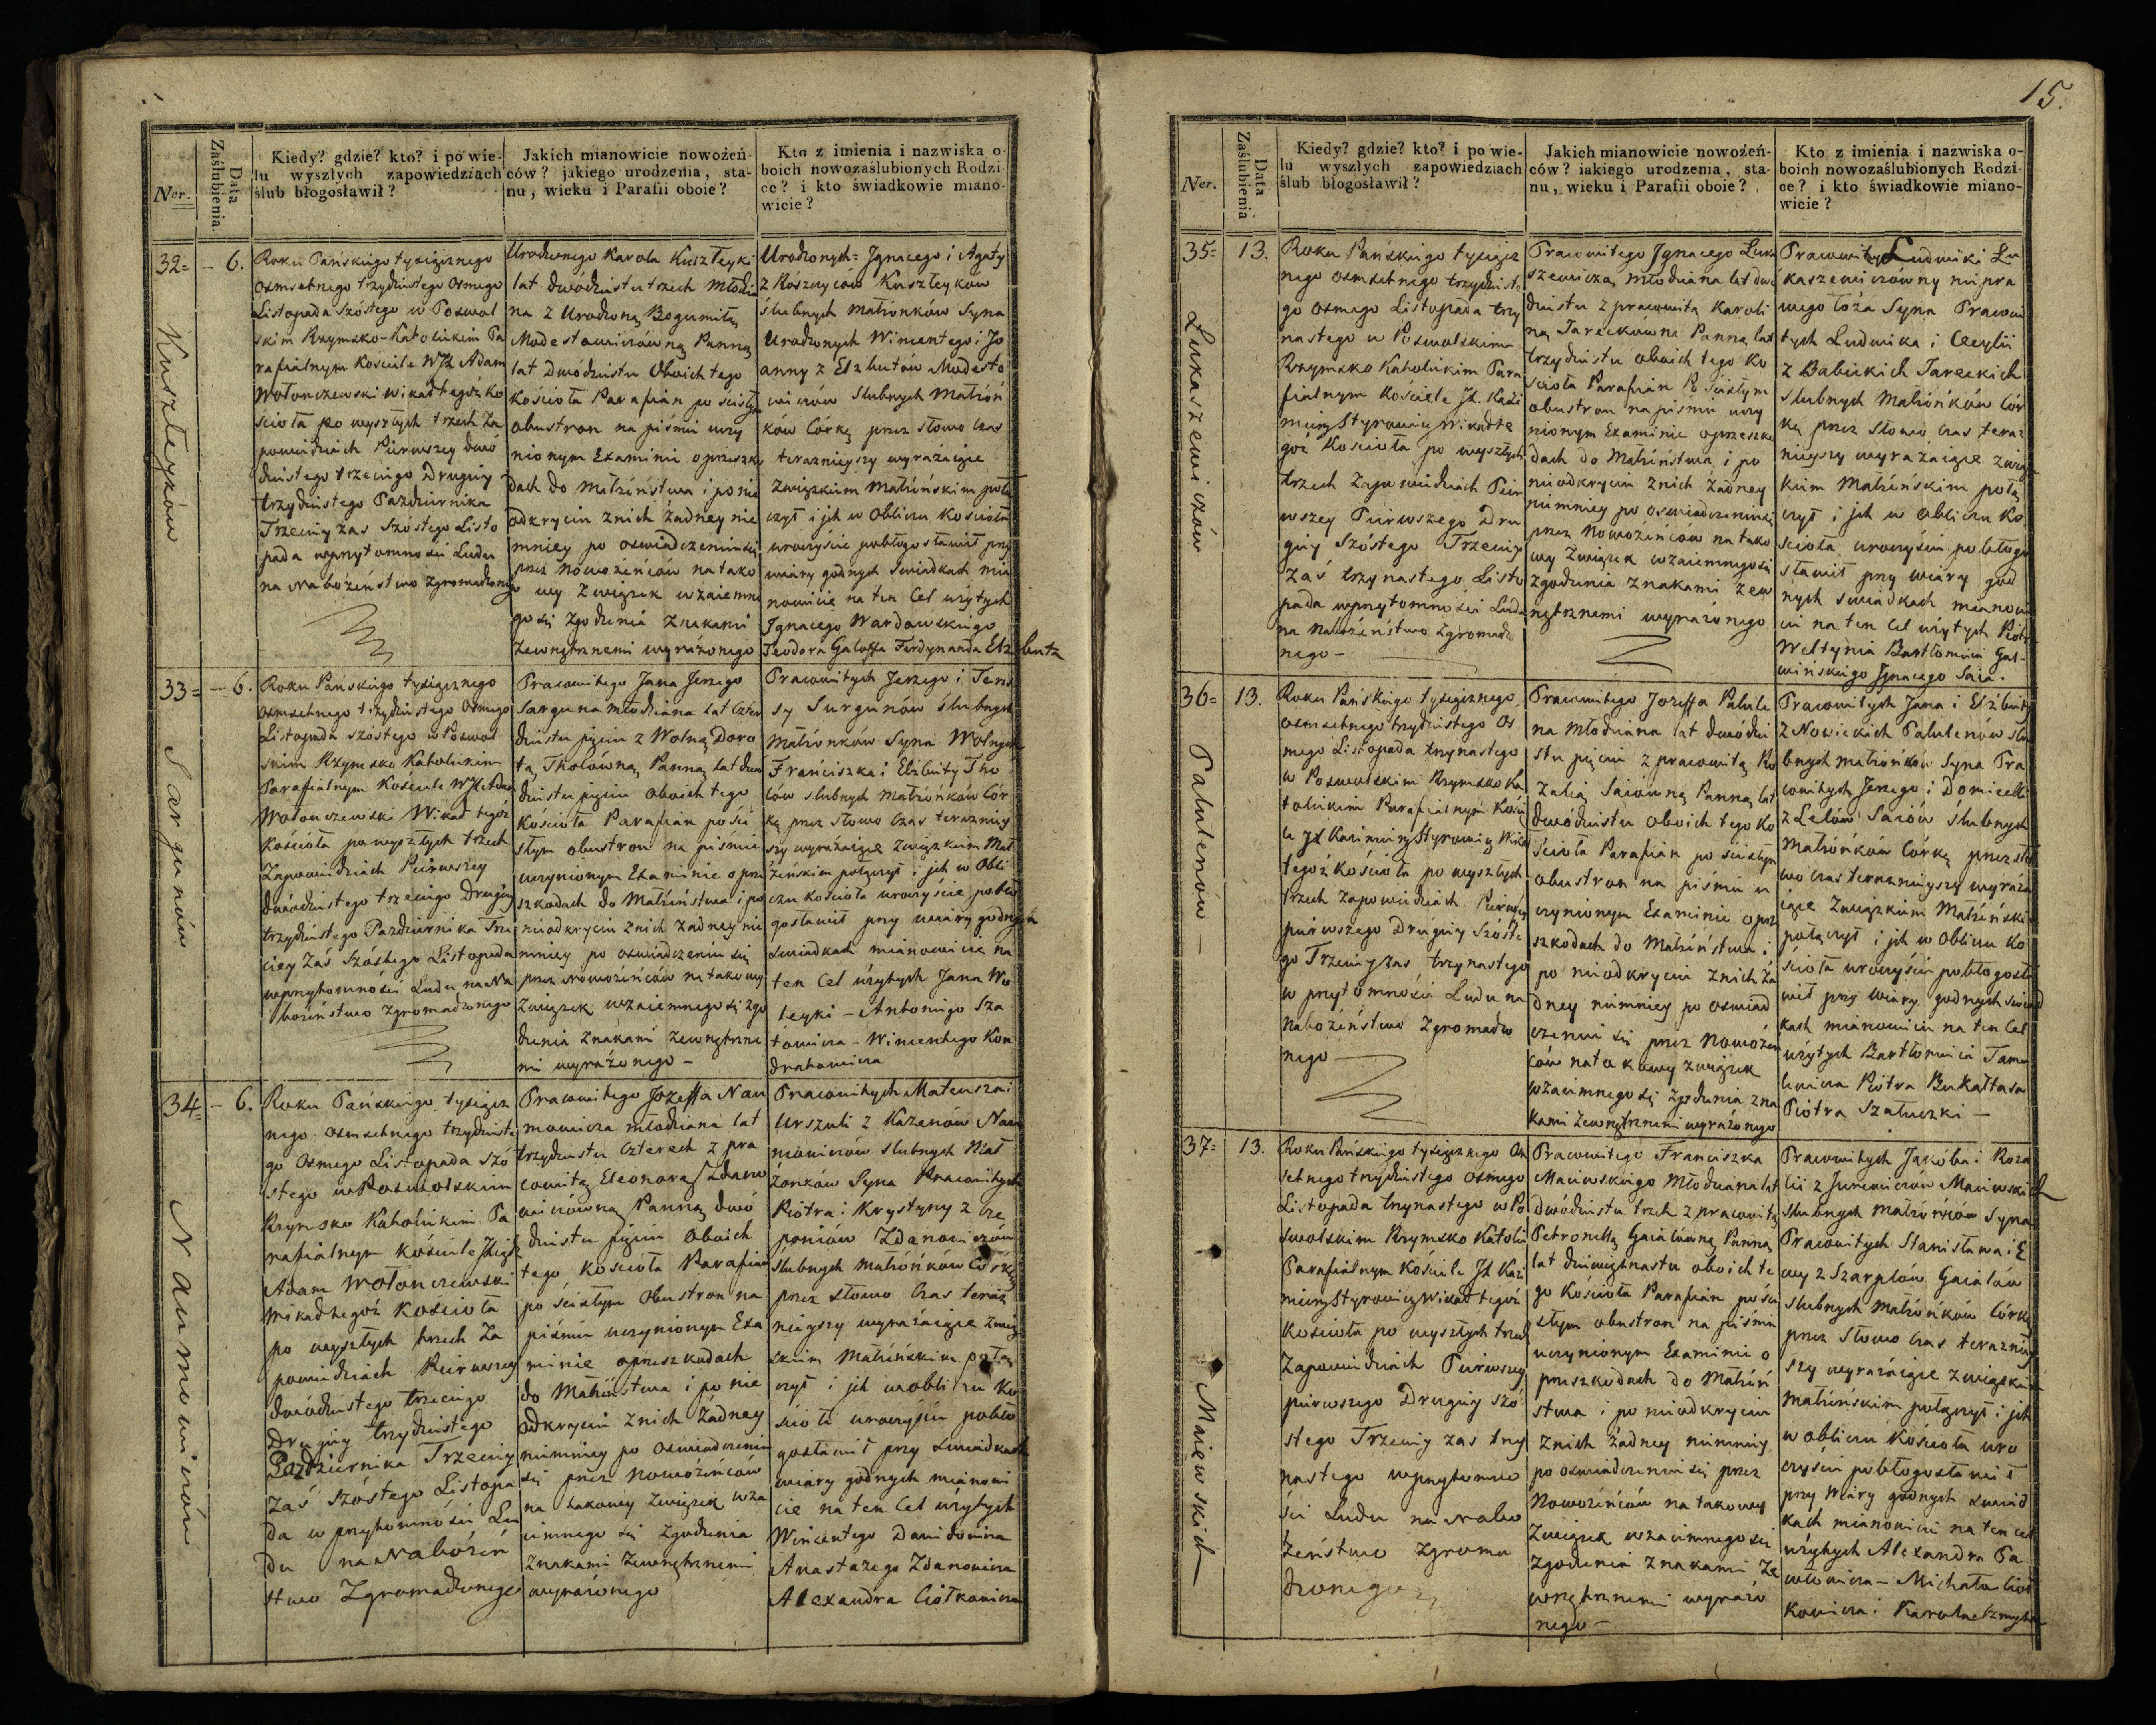 15.
Ner.
Data Zaślubienia
Kiedy? gdzie? kto? i po wie-
lu wyszłych zapowiedziach
ślub błogosławił?
Jakich mianowicie nowożeń-
ców? jakiego urodzenia, sta-
nu, wieku i Parafii oboie?
Kto z imienia i nazwiska o-
boich nowozaślubionych Rodzi-
ce? i kto świadkowie miano-
wicie?
32=
- 6.
Kuszłeyków
Roku Pańskiego tysiącznego
osmsetnego trzydziestego osmego
Listopada szóstego w Poswol
skim Rzymsko-Katolickim Pa
rafialnym Kościele WJX Adam
Wołonczewski Wikad tegóż Ko
ścioła po wyszłych trzech Za
powiedziach Pierwszey dwó
dziestego trzeciego Drugiey
trzydziestego Pazdziernika
Trzeciey zas szóstego Listo
pada w przytomności Ludu
na Nabożeństwo zgromadzonego
Urodzonego Karola Kuszłeyki
lat dwódziestu trzech Młodzia
na z Urodzoną Bogumiłą
Modestowiczówną Panną
lat Dwódziestu Oboich tego
Kościoła Parafian po scisłym
obustron na piśmie uczy
nionym Examinie o przeszko
dach do Małżeństwa i po nie
odkryciu znich żadney nie
mniey po oswiadczeniu się
przez Nowożeńców na tako
wy Związek wzaiemne
go się zgodzenia znakami
Zewnętrznemi wyrażonego
Urodzonych= Jgnacego i Agaty
z Roszczyców Kuszłeyków
ślubnych Małżonków Syna
Urodzonych Wincentego i Jo
anny z Elzbutów Modesto
wiczów Slubnych Małżon
ków Córkę przez słowo czas
terazniejszy wyrażaiące
związkiem Małżeńskim połą
czył i jch w Obliczu Kościoła
uroczyście pobłogosławił przy
wiary godnych Swiadkach mia
nowicie na ten Cel użytych
Jgnacego Wardowskiego
Teodora Galoffa Ferdynanda Elzbuta
33=
- 6.
Sargunów
Roku Pańskiego tysiącznego
osmsetnego trzydziestego Osmego
Listopada szóstego w Poswol
skim Rzymsko Katolickim
Parafialnym Kościele WJX Adam
Wołonczewski Wikad tegóż
Kościoła po wyszłych trzech
Zapowiedziach Pierwszey
dwódziestego trzeciego Drugiey
trzydziestego Pazdziernika Trze
ciey Zaś szóstego Listopada
w przytomności Ludu na Na
bożeństwo Zgromadzonego
Pracowitego Jana Jerzego
Sarguna młodziana lat Czter
dziestu pięciu z Wolną Doro
tą Tholówną Panną lat dwu
dziestu pięciu oboich tego
Kościoła Parafian po ści
słym obustron na piśmie
uczynionym Examinie o prze
szkodach do Małżeństwa i po
nieodkryciu znich żadney nie
mniey po oswiadczeniu się
przez Nowożeńców na takowy
Związek wzaiemnego się zgo
dzenia znakami zewnętrzne
mi wyrażonego -
Pracowitych Jerzego i Tere
sy Surgunów ślubnych
Małżonków Syna Wolnych
Franciszka i Elżbiety Tho
lów slubnych Małżonków Cór
kę przez słowo Czas terazniey
szy wyrażaiące związkiem Mał
żeńskim połączył i jch w Obli
czu Kościoła uroczyście pobło
gosławił przy wiary godnych
Swiadkach mianowicie na
ten Cel użytych Jana Wo
leyki - Antoniego Sza
towicza - Wincentego Kon
drahowicza
34=
- 6.
Naumowiczów
Roku Pańskiego tysiącz
nego osmsetnego trzydzieste
go Osmego Listopada szó
stego w Poswolskim
Rzymsko Katolickim Pa
rafialnym Kościele Xiądz
Adam Wołonczewski
Wikad tegoż Kościoła
po wyszłych trzech Za
powiedziach Pierwszey
dwódziestego trzeciego
Drugiey trzydziestego
Pazdziernika Trzeciey
Zaś Szóstego Listopa
da w przytomności Lu
du na Nabożeń
stwo Zgromadzonego
Pracowitego Jozeffa Nau
mowicza młodziana lat
trzydziestu czterech z pra
cowitą Eleonorą Zdano
wiczówną Panną dwó
dziestu pięciu Oboich
tego Kościoła Parafian
po ścisłym Obustron na
piśmie uczynionym Exa
minie o przeszkodach
do Małżeństwa i po nie
odkryciu znich żadney
niemniey po oswiadczeniu
się przez Nowożeńców
na takowy Związek wza
iemnego się Zgodzenia
znakami Zewnętrznemi
wyrażonego
Pracowitych Mateusza i
Urszuli z Kazanów Nau
mowiczów slubnych Mał
żonków Syna Pracowitych
Piotra i Krystyny z Cze
poniów Zdanowiczów
Slubnych Małżonków Córkę
przez słowo Czas teraz
nieyszy wyrażaiące Zwią
zkiem Małżeńskim połą
czył i jch w obliczu Ko
scioła uroczyście pobło
gosławił przy swiadkach
wiary godnych mianowi
cie na ten Cel użytych
Wincentego Dawidowicza
Anastazego Zdanowicza
Alexandra Ciotkowicza
Ner.
Data Zaślubienia
Kiedy? gdzie? kto? i po wie-
lu wyszłych zapowiedziach
ślub błogosławił?
Jakich mianowicie nowożeń-
ców? iakiego urodzenia, sta-
nu, wieku i Parafii oboie?
Kto z imienia i nazwiska o-
boich nowozaślubionych Rodzi-
ce? i kto świadkowie miano-
wicie?
35=
13.
Łukaszewiczów
Roku Pańskiego tysiącz
nego osmsetnego trzydzieste
go osmego Listopada trzy
nastego w Poswolskim
Rzymsko Katolickim Para
fialnym Kościele JX. Kazi
mierz Styrowicz Wikad te
goż Kościoła po wyszłych
trzech Zapowiedziach Pier
wszey Pierwszego Dru
giey Szóstego Trzeciey
Zaś trzynastego Listo
pada w przytomności Ludu
na Nabożeństwo Zgromadzo
nego -
Pracowitego Jgnacego Łuka
szewicza młodziana lat dwu
dziestu z pracowitą Karoli
ną Jareckówną Panną lat
trzydziestu oboich tego Ko
ścioła Parafian Po ścisłym
obustron na piśmie uczy
nionym Examinie o przeszko
dach do Małżeństwa i po
nieodkryciu znich Żadney
niemniey po oswiadczeniu się
przez Nowożeńców na tako
wy Związek wzaiemnego się
zgodzenia znakami zew
nętrznemi wyrażonego
Pracowitey Ludwiki Łu
kaszewiczówny niepra
wego łóża Syna Pracowi
tych Ludwika i Cecylii
z Babickich Jareckich
slubnych Małżonków Cór
kę przez Słowo Czas teraz
nieyszy wyrażaiące zwią
zkiem Małżeńskim połą
czył i jch w obliczu Ko
ścioła uroczyście pobłogo
sławił przy wiary god
nych swiadkach mianowi
cie na ten Cel użytych Piotra
Weltynia Bartłomieia Gał-
wińskiego Jgnacego Saia.
36=
13.
Palulenów -
Roku Pańskiego tysiącznego
osmsetnego trzydziestego Os
mego Listopada trzynastego
w Poswolskim Rzymsko Ka
tolickim Parafialnym Kości
ele JX Kazimierz Styrowicz Wikad
tegóż Kościoła po wyszłych
trzech zapowiedziach Pierwszey
pierwszego Drugiey Szóste
go Trzeciey zas trzynastego
w przytomności Ludu na
Nabożeństwo Zgromadzo
nego
Pracowitego Jozeffa Palule
na Młodziana lat dwódzie
stu pięciu z pracowitą Ro
zalią Saiówną Panną lat
dwódziestu oboich tego Ko
ścioła Parafian po ścisłym
obustron na piśmie u
czynionym Examinie o prze
szkodach do Małżeństwa i
po nieodkryciu znich ża
dney niemniey po oswiad
czeniu się przez Nowożeń
ców na takowy związek
wzaiemnego się zgodzenia zna
kami Zewnętrznemi wyrażonego
Pracowitych Jana i Elżbiety
z Nowickich Palulenów slu
bnych małżonków Syna Pra
cowitych Jerzego i Domicelli
z Lelów Saiów Slubnych
Małżonków Córkę przez sło
wo czas teraznieyszy wyraża
iące Związkiem Małżeńskim
połączył i jch w Obliczu Ko
ścioła uroczyście pobłogosła
wił przy wiary godnych swiad
kach mianowicie na ten Cel
użytych Bartłomieia Tamu
lewicza Piotra Bukałtasa
Piotra Szałuczki -
37=
13.
Maiewskich
Roku Pańskiego tysiącznego Osm
setnego trzydziestego Osmego
Listopada trzynastego w Po
swolskim Rzymsko Katolic
Parafialnym Kościele JX Kazi
mierz Styrowicz Wikad tegóż
Kościoła po wyszłych trzech
Zapowiedziach Pierwszey
pierwszego Drugiey szó
stego Trzeciey zas trzy
nastego w przytomno
ści Ludu na Nabo
żeństwo zgroma
dzonego
Pracowitego Franciszka
Maiewskiego Młodziana lat
dwódziestu trzech z pracowitą
Petronellą Gaialówną Panną
lat dziewiętnastu oboich te
go Kościoła Parafian po ści
słym obustron na piśmie
uczynionym Examinie o
przeszkodach do Małżeń
stwa i po nieodkryciu
znich żadney niemniey
po oswiadczeniu się przez
Nowożeńców na takowy
Związek wzaiemnego się
zgodzenia znakami Ze
wnętrznemi wyrażo
nego -
Pracowitych Jakóba i Roza
lii z Jurewiczów Maiewskich
Slubnych małżonków Syna
Pracowitych Stanisława i E
wy z Szarplów Gaialów
Slubnych Małżonków Córkę
przez Słowo Czas terazniey
szy wyrażaiące związkiem
Małżeńskim połączył i jch
w obliczu Kościoła uro
czyście pobłogosławił
przy Wiary godnych swiad
kach mianowicie na ten cel
użytych Alexandra Pa
włowicza - Michała Ciot
kowicza i Karola